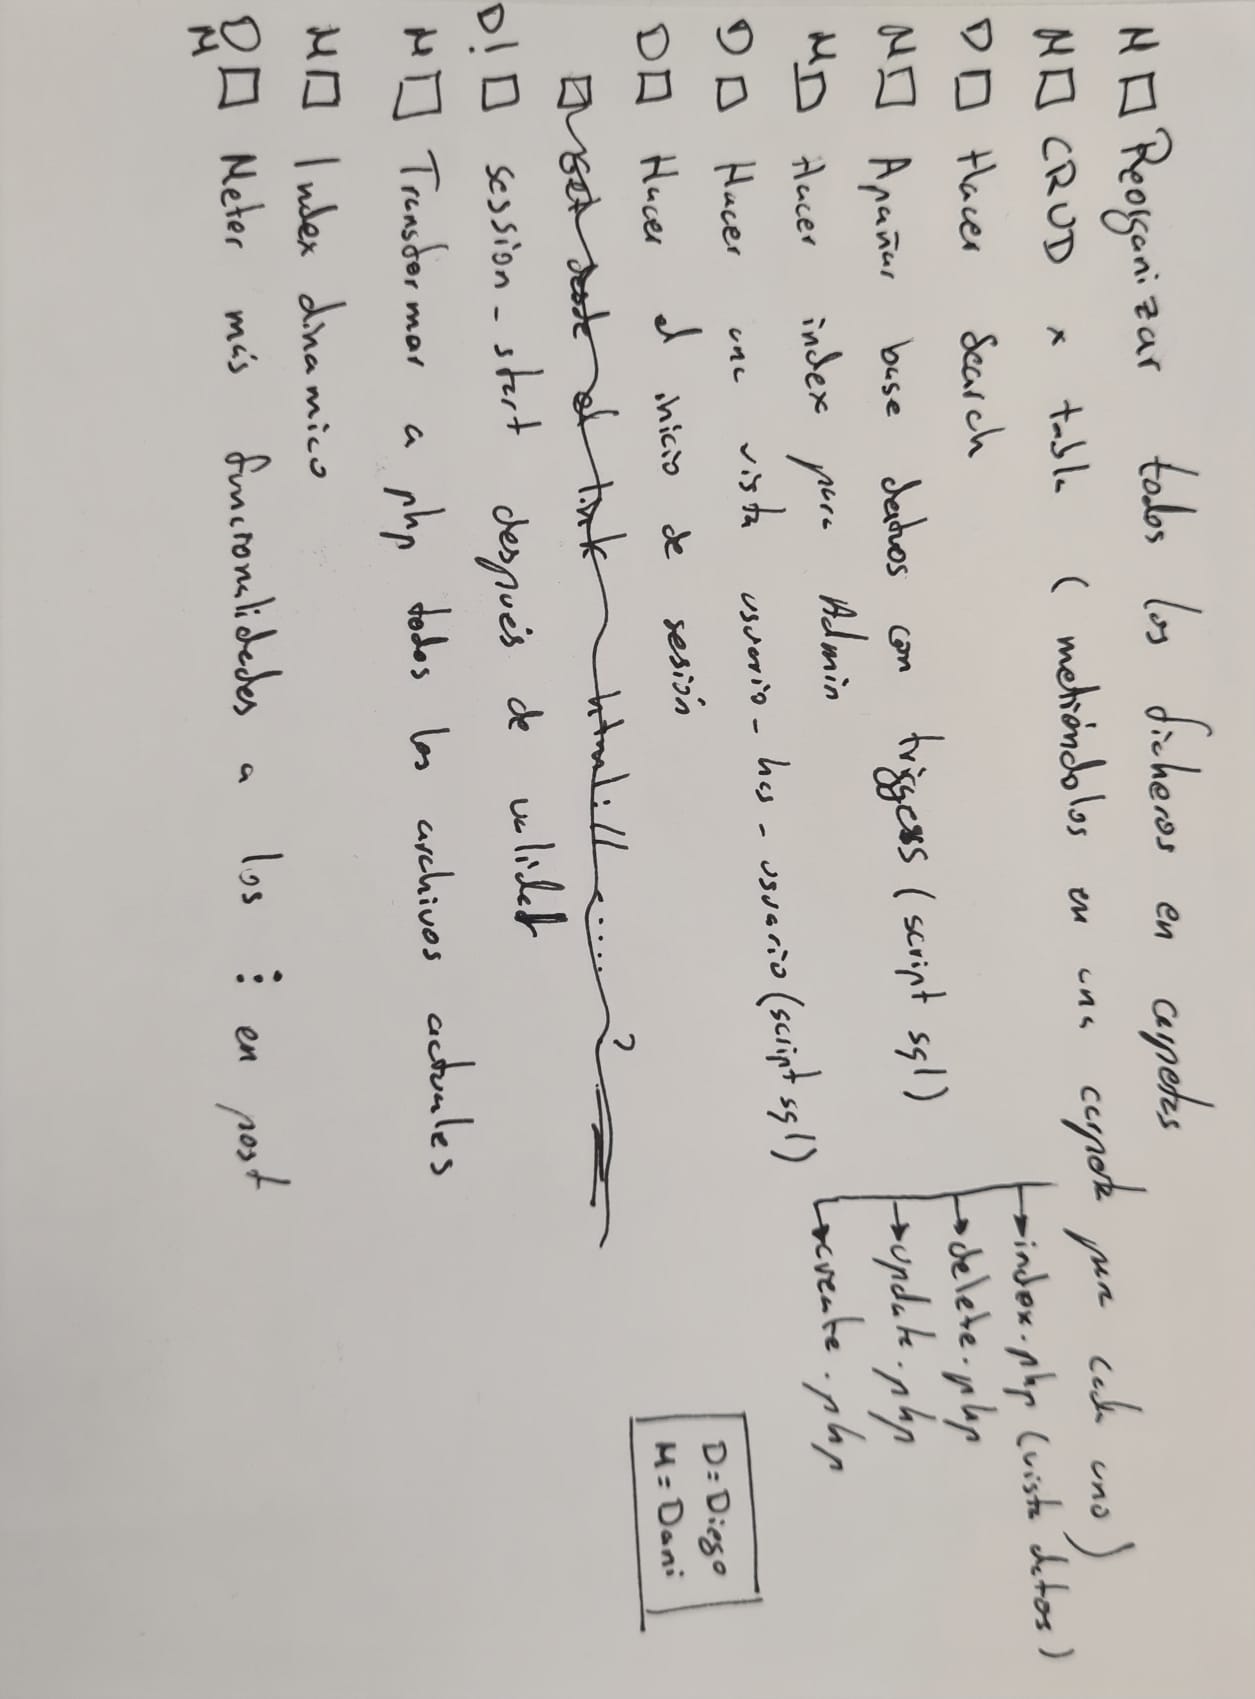 M □ Reorganizar todos los ficheros en carpetas
M □ CRUD x tabla ( metiéndolos en una carpeta para cada uno )
→ index.php (vista datos)
D □ Hacer Search
→ delete.php
M □ Apañar base datos con triggers ( script sql )
→ update.php
M □ Hacer index para Admin
→ create.php
D □ Hacer una vista usuario_has_usuario (script sql)
D = Diego
M = Dani
D □ Hacer el inicio de sesión
□ Get desde el link html:// ..... ?
D! □ session_start después de validar
M □ Transformar a php todos los archivos actuales
M □ Index dinamico
D M □ Meter más funcionalidades a los ⋮ en post